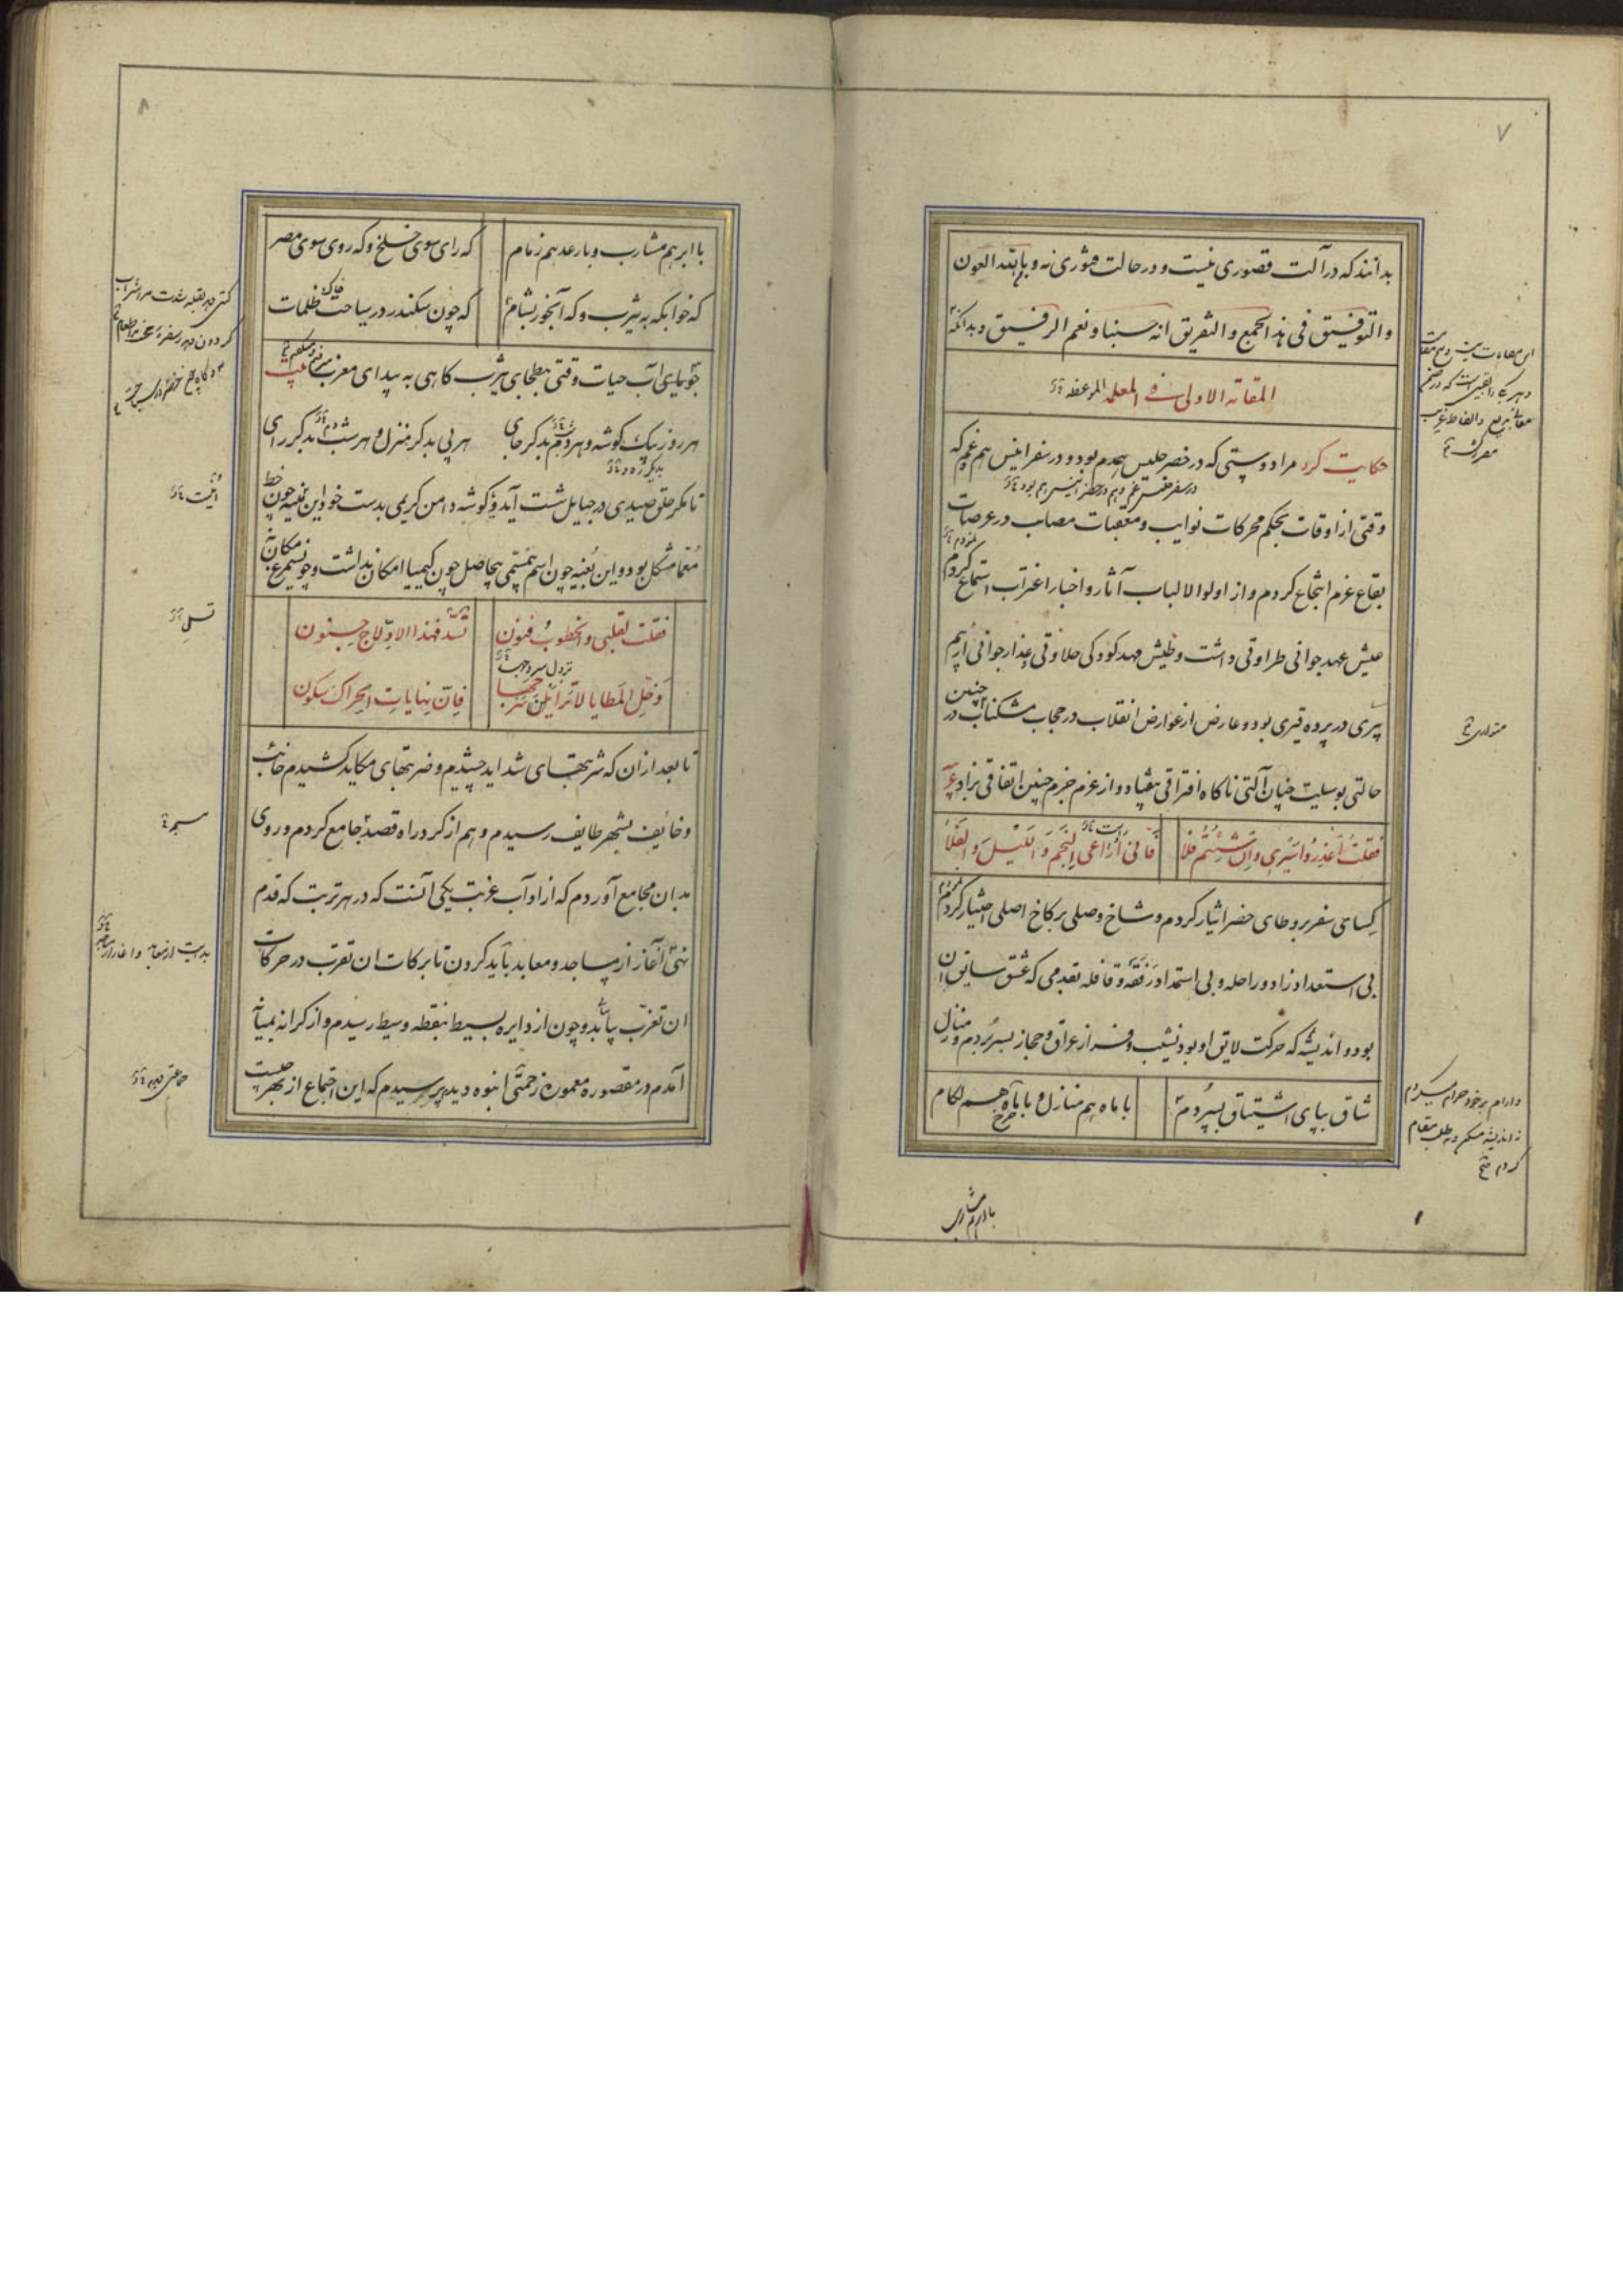 ۷
بدانند که در آلت قصوری نیست و در حالت فتوری نه و بالله العون
والتوفیق فی هذا الجمع والتفریق انه حسبنا ونعم الرفیق وبدانکه
المقامة الاولی فی الملمعه الموعظه
حکایت کرد مرا دوستی که در حضر جلیس همدم بود و در سفر انیس هم غم که
وقتی از اوقات بحکم محرکات نوایب و معقبات مصایب در عرصات
بقاع عزم انتجاع کردم و از اولوا الالباب آثار و اخبار اغتراب استماع کردم
عیش عهد جوانی طراوتی داشت و طیش مهد کودکی حلاوتی عذار جوانی از بیم
پیری در پرده قیری بود و عارض از عوارض انقلاب در حجاب مشکناب در چنین
حالتی بوسلیت چنان آلتی ناگاه افتراقی بیفتاد و از عزم جزم چنین اتفاقی بزاد
فقلت اعذروا سیری وان شئتم فلا
فانی اراعی النجم واللیل والفلا
کسای سفر بر وطای حضر ایثار کردم و شاخ وصلی بر کاخ اصلی اختیار کردم
بی استعداد زاد و راحله و بی استمداد رفقه و قافله بقدمی که عشق سایق آن
بود و اندیشه که حرکت لایق او بود نشیب و فراز عراق و حجاز بسر بردم و منازل
شاق بپای اشتیاق بسپردم
با ماه هم منازل و با باد هم لگام
با ابر هم مشارب
۸
با ابر هم مشارب و با رعد هم زمام
که رای سوی خلخ و که روی سوی مصر
که خوابکه به یثرب و که آبخور بشام
که چون سکندر در سیاحت ظلمات
جویای آب حیات وقتی ببطحای یثرب کاهی به بیدای مغرب
هر روز بیک کوشه و هر دم بدکر جای
هر پی بدکر منزل و هر شب بدکر رای
تا مکر حلق صیدی در حبایل شست آید و کوشه دامن کریمی بدست خود این تعبیه چون خط
معما مشکل بود و این بغیه چون اسم بی مسمی بیحاصل چون کیمیا امکان نداشت و چون سیمرغ مکان
فقلت لقلبی والخطوب فنون
تسل فهذا الادلاج جنون
وخل المطایا لا تزایلن تربها
فان نهایات الحراک سکون
تا بعد از ان که شربتهای شداید چشیدم و ضربتهای مکاید کشیدم خائب
و خائف بشهر طایف رسیدم و هم از کرد راه قصد جامع کردم و روی
بدان مجامع آوردم که از اوآب غربت یکی آنست که در هر تربت که قدم
نهی آغاز از مساجد و معابد باید کردن تا برکات ان تقرب در حرکات
ان تغرب پاید و چون از دایره بسیط بنقطه وسیط رسیدم و از کرانه بمیانه
آمدم در مقصوره معموره زحمتی انبوه دیدم پرسیدم که این اجتماع از بهر چیست